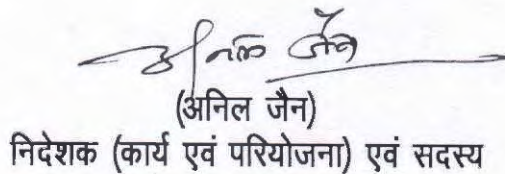 अनिल जैन
(अनिल जैन)
निदेशक (कार्य एवं परियोजना) एवं सदस्य